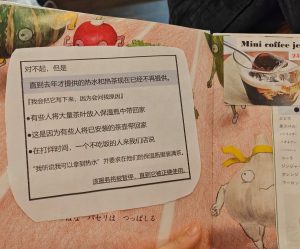 对不起，但是
直到去年才提供的热水和热茶现在已经不再提供。
『我会把它写下来，因为会问候原因』
●有些人将大量茶叶放入保温瓶中带回家
●这是因为有些人将已安装的茶壶带回家
●在打烊时间，一个不吃饭的人来我们店说
“我听说我可以拿到热水” 并要求在他们的保温瓶里装满茶。
该服务将被暂停，直到它被正确使用。
パセリは つっぱしる
Mini coffee je